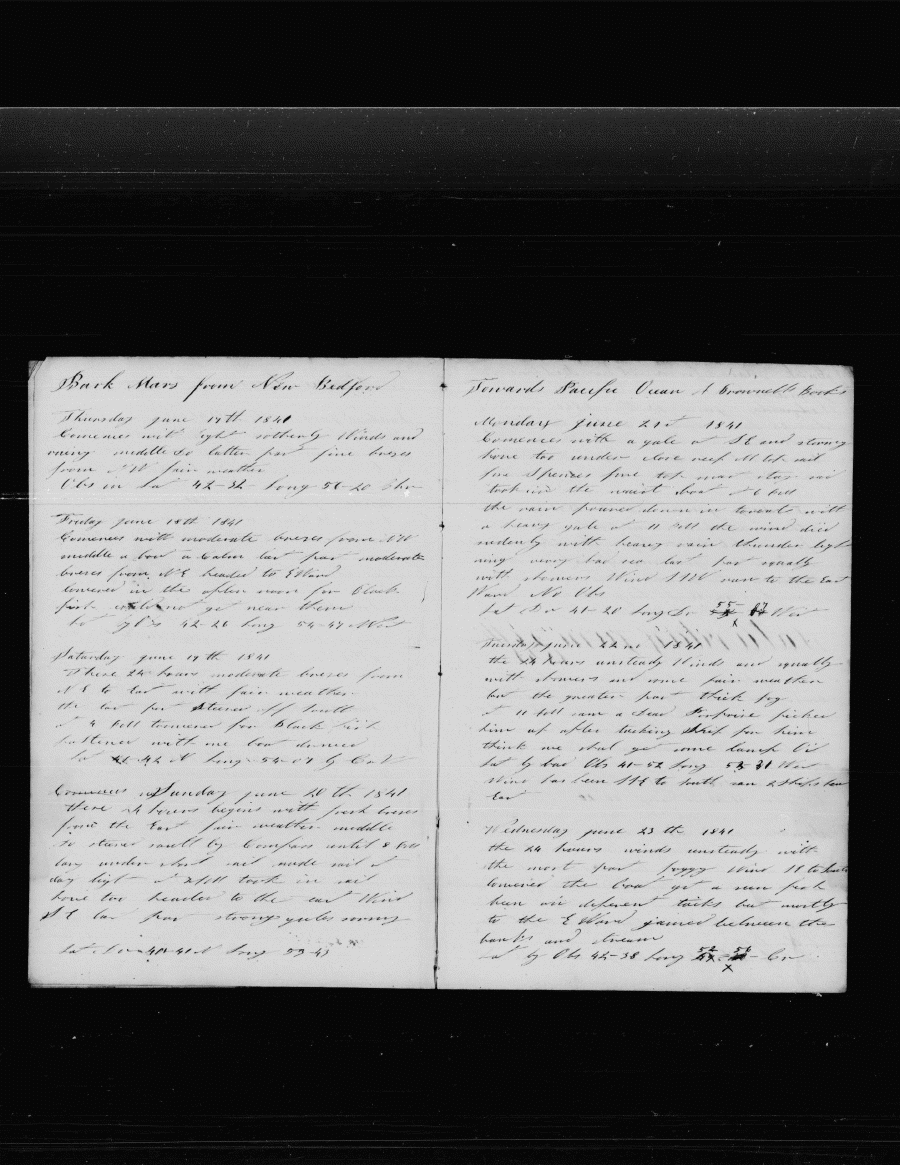 Bark Mars from New Bedford
Thursday june 17th 1841
Comences wit light sotherly Winds and
middle So latter part fine breses
from NW fair weather
Obs in Lat 42-32 Long 56-20
Friday june 18th 1841
Comences with moderate breses from NW
middle a bou a Calm last part moderate
breses from NE headed to EWard
lowered in the after noon for Black
fish could not get near them
Lat by Obs 42-26 Long 54-47 West
Saturday june 19th 1841
These 24 hours moderate breses from
NE to East with fair weather
the last part Stered off South
at 4 bell lowered for Black fish
fastened with one boat drawed
Lat 42 N Long 54-07 by
Comences Sunday june 20th 1841
these 24 hours begins with fresh breses
from the East fair weather middle
So stered south by Compass until 8 bell
lay under short sail made sail at
day light at 2 bell took in sail
hove too headed to the east Wind
SE last part strong gales
Lat N Long 53-43
Towards Pacific Ocean A Brownells Book
Monday june 21st 1841
Comences with a gale at SE and strong
hove too under close reef M top sail
fore Spencer fore top mast stay sail
took in the waist boat at 6 bell
the rain poured down in torents with
a heavy gale at 11 bell the wind died
sudenly with heavy rain thunder ligh
ning very bad sea last part squaly
with showers Wind SSW ran to the East
Ward No Obs
Lat Dr 41-28 Long Dr 55 West
Tuesday june 22nd 1841
the 24 hours unsteady Winds and squally
with showers and some fair weather
but the greater part thick fog
at 11 bell saw a Dead Porpoise picked
him up after tacking Ship for him
think we shal get some lamp Oil
Lat by bad Obs 41-52 Long 53 West
Wind has been to South saw 2 Ships
East
Wednesday june 23th 1841
the 24 hours winds unsteady with
the most part foggy Wind to South
lowered the boat got a sun fish
been on deferent tacks but mostly
to the EWard jamed between the
banks and stream
Lat by Obs 42-38 Long 54